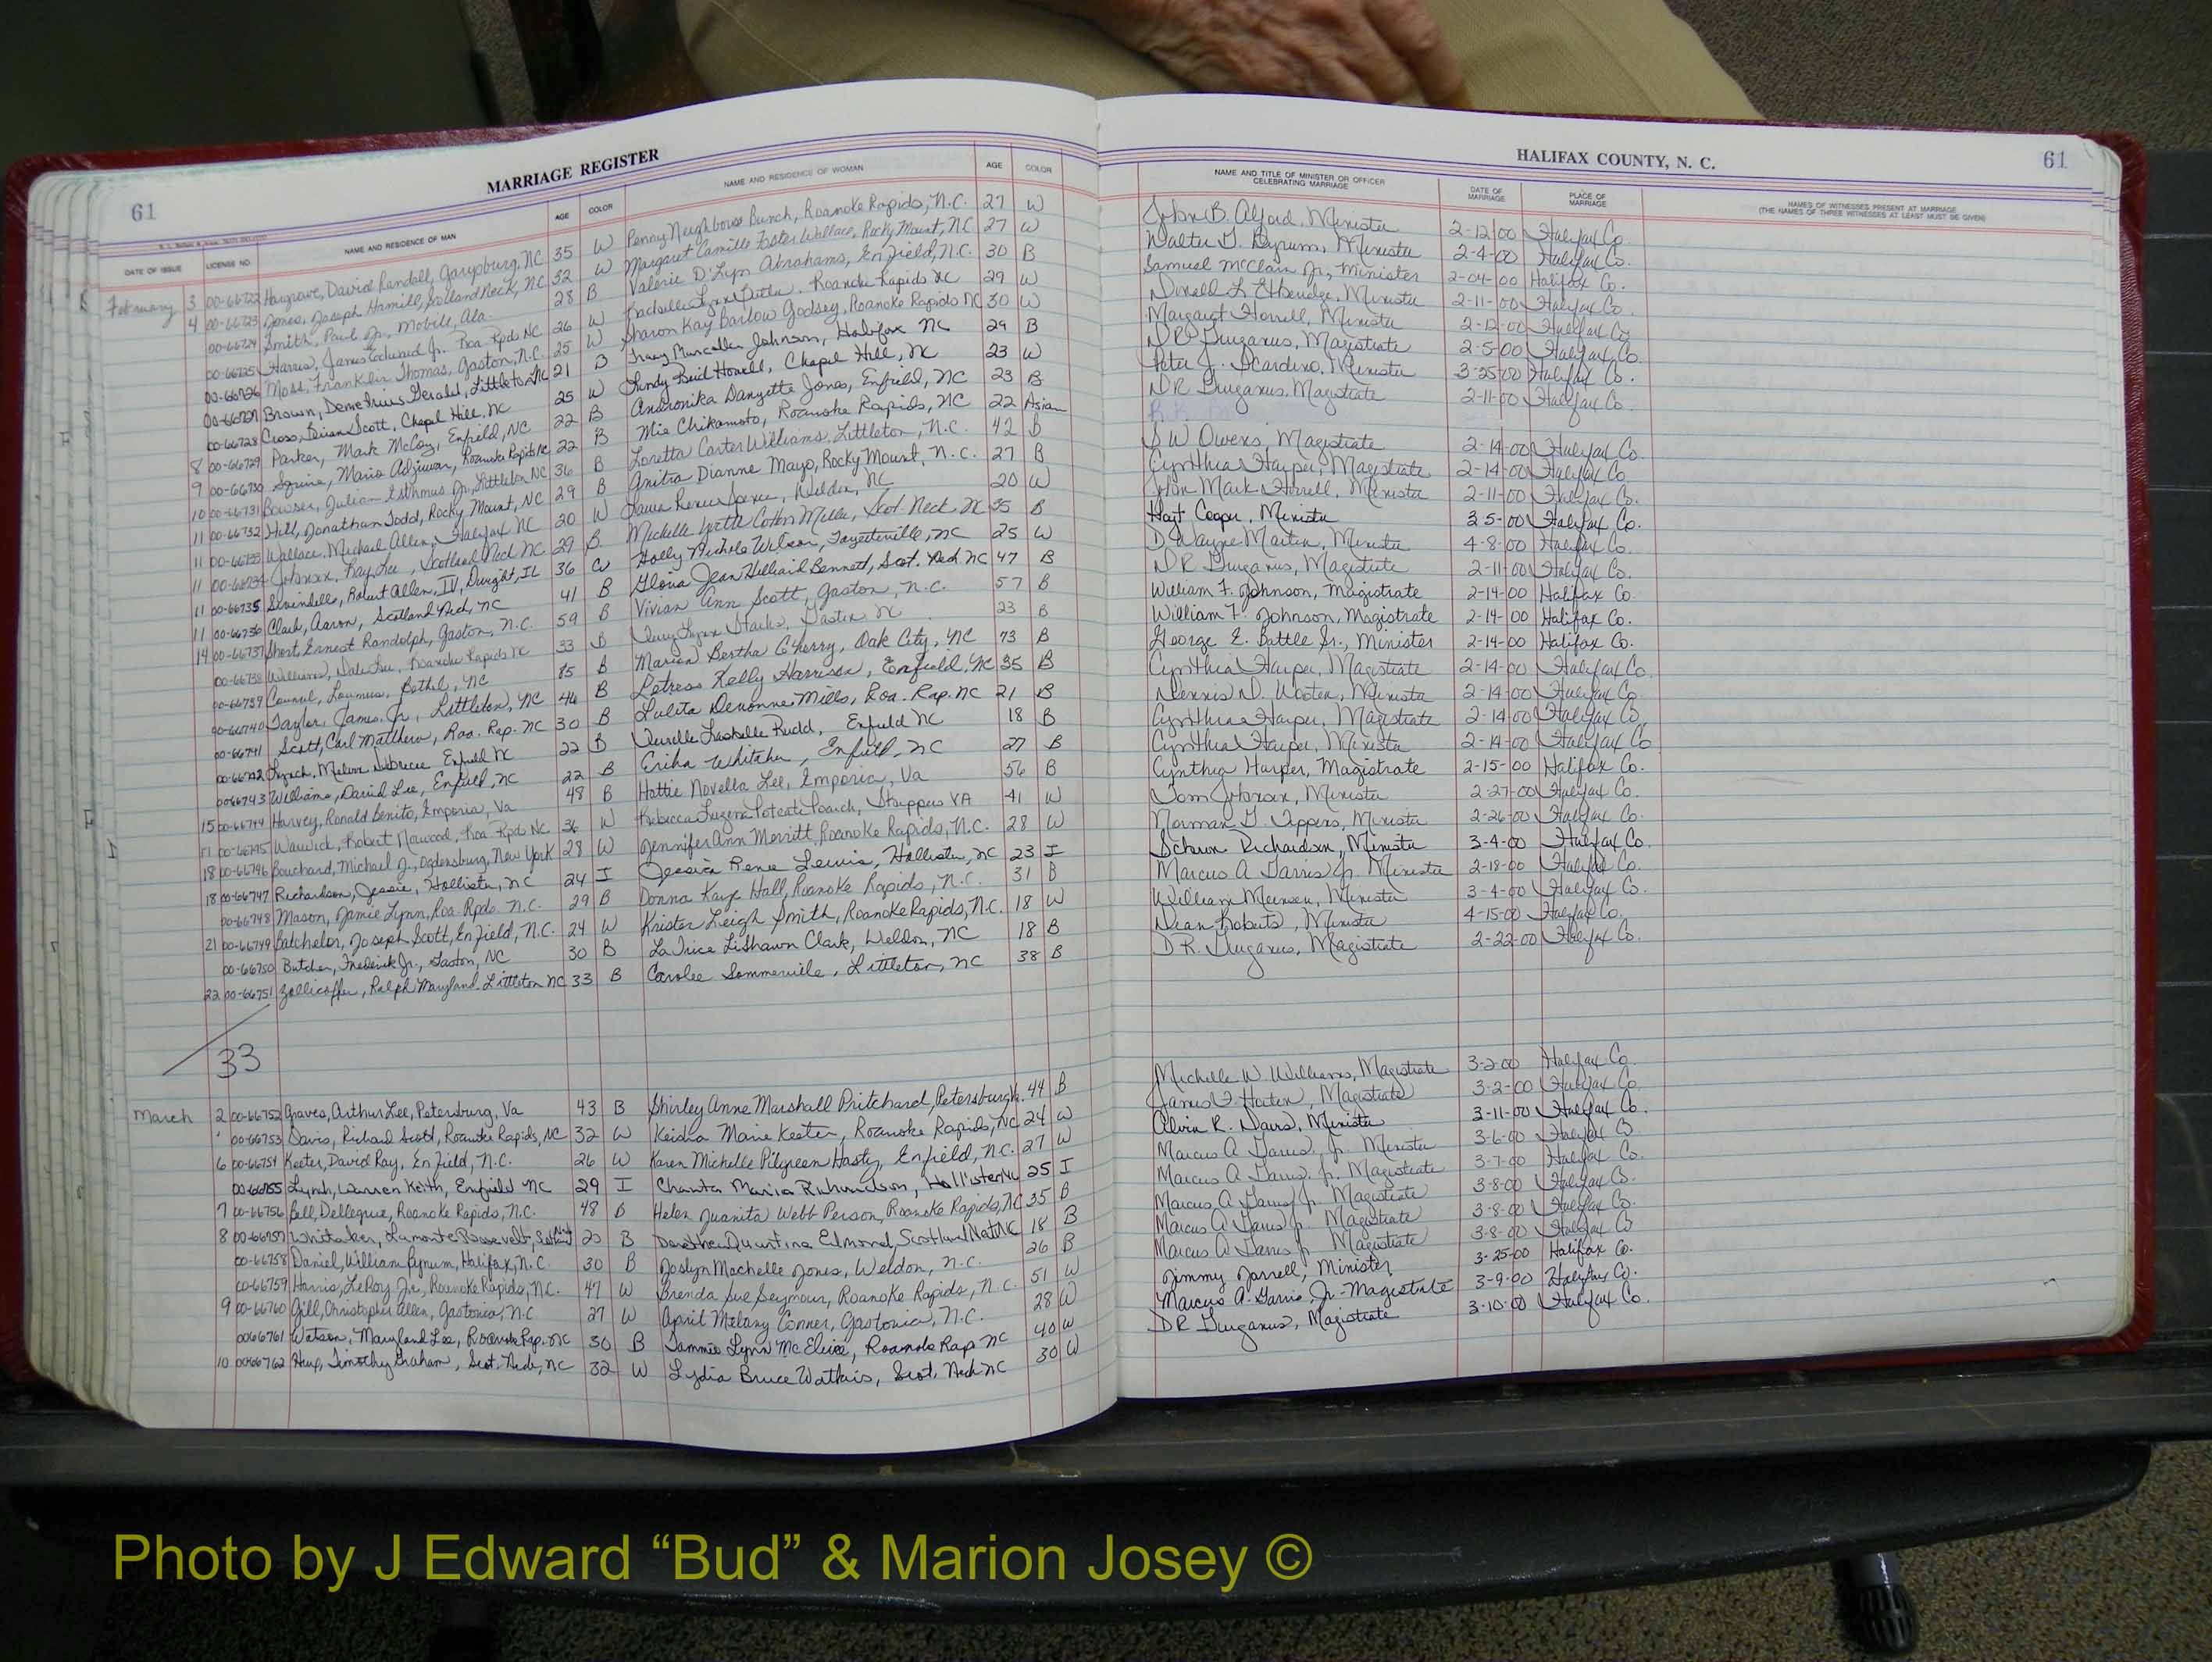 MARRIAGE REGISTER
61
DATE OF ISSUE LICENSE NO. NAME AND RESIDENCE OF MAN AGE COLOR NAME AND RESIDENCE OF WOMAN AGE COLOR
February 3 00-66722 Hargrove, David Randall, Garysburg, NC 35 W Penny Neighbours Bunch, Roanoke Rapids, N.C. 27 W
4 00-66723 Jones, Joseph Hamill, Scotland Neck, NC 32 W Margaret Camille Foster Wallace, Rocky Mount, NC 27 W
00-66724 Smith, Paul Jr., Mobile, Ala. 28 B Valerie D'Lyn Abrahams, Enfield, N.C. 30 B
00-66725 Harris, James Edward Jr. Roa. Rpds NC 26 W Rachelle Lynn Roanoke Rapids NC 29 W
00-66726 Moss, Franklin Thomas, Gaston, N.C. 25 W Sharon Kay Barlow Godsey, Roanoke Rapids NC 30 W
00-66727 Brown, Demetrius Gerald, Littleton NC 21 B Tracy Johnson, Halifax NC 29 B
00-66728 Cross, Brian Scott, Chapel Hill, NC 25 W Lindy Reid Howell, Chapel Hill, NC 23 W
8 00-66729 Parker, Mark McCoy, Enfield, NC 22 B Andronika Danzette Jones, Enfield, NC 23 B
9 00-66730 Squire, Mario Roanoke Rapids NC 22 B Mie Chikamoto, Roanoke Rapids, NC 22 Asian
10 00-66731 Bowser, Julian Isthmus Jr, Littleton NC 36 B Loretta Carter Williams, Littleton, N.C. 42 B
11 00-66732 Hill, Jonathan Todd, Rocky Mount, NC 29 B Anitra Dianne Mayo, Rocky Mount, N.C. 27 B
11 00-66733 Wallace, Michael Allen, Halifax NC 20 W Laura Renee Weldon, NC 20 W
11 00-66734 Johnson, Ray Lee, Scotland Neck NC 29 B Michelle Yvette Cotton Mills, Scot. Neck, NC 35 B
11 00-66735 Swindell, Robert Allen, IV, Dwight, IL 36 W Holly Nichols Wilson, Fayetteville, NC 25 W
11 00-66736 Clark, Aaron, Scotland Neck, NC 41 B Gloria Jean Hilliard Bennett, Scot. Neck NC 47 B
14 00-66737 Short, Ernest Randolph, Gaston, N.C. 59 B Vivian Ann Scott, Gaston N.C. 57 B
00-66738 Williams, Roanoke Rapids NC 33 B Lynn Gaston NC 23 B
00-66739 Council, Bethel, NC 85 B Marion Bertha Cherry, Oak City, NC 73 B
00-66740 Taylor, James Jr., Littleton, NC 44 B Letress Kelly Harrison, Enfield, NC 35 B
00-66741 Scott, Carl Matthew, Roa. Rap. NC 30 B Lulita Devonne Mills, Roa. Rap. NC 21 B
00-66742 Lynch, Enfield NC 22 B Rudd, Enfield NC 18 B
00-66743 Williams, David Lee, Enfield, NC 22 B Erika Whitaker, Enfield, NC 27 B
15 00-66744 Harvey, Ronald Benito, Emporia, Va 48 B Hattie Novella Lee, Emporia, Va 56 B
17 00-66745 Warwick, Robert Norwood, Roa. Rpds NC 36 W Rebecca Poteate Roach, VA 41 W
18 00-66746 Bouchard, Michael J., Ogdensburg, New York 28 W Jennifer Ann Merritt, Roanoke Rapids, N.C. 28 W
18 00-66747 Richardson, Jessie, Hollister, NC 24 I Jessica Rene Lewis, Hollister, NC 23 I
00-66748 Mason, Jamie Lynn, Roa. Rpds. N.C. 29 B Donna Kaye Hall, Roanoke Rapids, N.C. 31 B
21 00-66749 Batchelor, Joseph Scott, Enfield, N.C. 24 W Kristen Leigh Smith, Roanoke Rapids, N.C. 18 W
00-66750 Butcher, Frederick Jr., Gaston, NC 30 B LaTrice LiShawn Clark, Weldon, NC 18 B
22 00-66751 Zollicoffer, Ralph Maryland, Littleton NC 33 B Carolee Sommerville, Littleton, NC 38 B
33
March 2 00-66752 Graves, Arthur Lee, Petersburg, Va 43 B Shirley Anne Marshall Pritchard, Petersburg Va. 44 B
00-66753 Davis, Richard Scott, Roanoke Rapids, NC 32 W Keisha Marie Keeter, Roanoke Rapids, NC 24 W
6 00-66754 Keeter, David Ray, Enfield, N.C. 26 W Karen Michelle Pilgreen Hasty, Enfield, N.C. 27 W
00-66755 Lynch, Warren Keith, Enfield NC 29 I Chanta Maria Richardson, Hollister NC 25 I
7 00-66756 Bell, Roanoke Rapids, N.C. 48 B Helen Juanita Webb Person, Roanoke Rapids, NC 35 B
8 00-66757 Whitaker, Lamonte Roosevelt, 20 B Quintina Edmond, Scotland Neck NC 18 B
00-66758 Daniel, William Bynum, Halifax, N.C. 30 B Joslyn Machelle Jones, Weldon, N.C. 26 B
00-66759 Harris, LeRoy Jr., Roanoke Rapids, N.C. 47 W Brenda Sue Seymour, Roanoke Rapids, N.C. 51 W
9 00-66760 Gill, Christopher Allen, Gastonia, N.C. 27 W April Melany Conner, Gastonia, N.C. 28 W
00-66761 Watson, Maryland Lee, Roanoke Rap. NC 30 B Tammie Lynn Roanoke Rap NC 40 W
10 00-66762 Timothy Graham, Scot. Neck, NC 32 W Lydia Bruce Watkins, Scot. Neck NC 30 W
HALIFAX COUNTY, N. C.
61
NAME AND TITLE OF MINISTER OR OFFICER CELEBRATING MARRIAGE DATE OF MARRIAGE PLACE OF MARRIAGE NAMES OF WITNESSES PRESENT AT MARRIAGE
(THE NAMES OF THREE WITNESSES AT LEAST MUST BE GIVEN)
John B. Alford, Minister 2-12-00 Halifax Co.
Walter G. Byrum, Minister 2-4-00 Halifax Co.
Samuel McClain Jr., Minister 2-04-00 Halifax Co.
Donald L Etheridge, Minister 2-11-00 Halifax Co.
Margaret Minister 2-12-00 Halifax Co
DR Gurganus, Magistrate 2-5-00 Halifax Co.
Peter J. Minister 3-25-00 Halifax Co.
DR Gurganus, Magistrate 2-11-00 Halifax Co.
S W Owens, Magistrate 2-14-00 Halifax Co.
Cynthia Harper, Magistrate 2-14-00 Halifax Co
John Mark Minister 2-11-00 Halifax Co.
Hoyt Cooper, Minister 3 5-00 Halifax Co.
D. Wayne Martin, Minister 4-8-00 Halifax Co.
DR Gurganus, Magistrate 2-11-00 Halifax Co.
William F. Johnson, Magistrate 2-14-00 Halifax Co.
William F. Johnson, Magistrate 2-14-00 Halifax Co.
George E. Battle Sr., Minister 2-14-00 Halifax Co.
Cynthia Harper, Magistrate 2-14-00 Halifax Co.
Dennis D. Wooten, Minister 2-14-00 Halifax Co
Cynthia Harper, Magistrate 2-14-00 Halifax Co
Cynthia Harper, Minister 2-14-00 Halifax Co
Cynthia Harper, Magistrate 2-15-00 Halifax Co.
Tom Johnson, Minister 2-27-00 Halifax Co.
Norman G. Minister 2-26-00 Halifax Co.
Richardson, Minister 3-4-00 Halifax Co.
Marcus A Garris Jr. Minister 2-18-00 Halifax Co.
William Minister 3-4-00 Halifax Co.
Dean Roberts, Minister 4-15-00 Halifax Co.
D.R. Gurganus, Magistrate 2-22-00 Halifax Co.
Michelle W. Williams, Magistrate 3-2-00 Halifax Co
James F. Magistrate 3-2-00 Halifax Co
Alvin R. Davis, Minister 3-11-00 Halifax Co.
Marcus A Garris, Jr. Minister 3-6-00 Halifax Co
Marcus A. Garris, Jr. Magistrate 3-7-00 Halifax Co.
Marcus A Garris Jr. Magistrate 3-8-00 Halifax Co.
Marcus A Garris Jr. Magistrate 3-8-00 Halifax Co.
Marcus A Garris Jr. Magistrate 3-8-00 Halifax Co
Jimmy Jarrell, Minister 3-25-00 Halifax Co.
Marcus A. Garris, Jr. Magistrate 3-9-00 Halifax Co.
DR Gurganus, Magistrate 3-10-00 Halifax Co.
Photo by J Edward “Bud” & Marion Josey ©